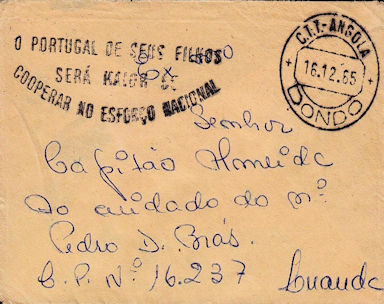 O PORTUGAL DE SEUS FILHOS
SERÁ MAIOR SE
COOPERAR NO ESFORÇO NACIONAL
C.T.T.-ANGOLA
16.12.65
DONDO
Senhor
Capitão Almeida
Ao cuidado do
Pedro D. Brás.
C.P. Nº 16.237 Luanda